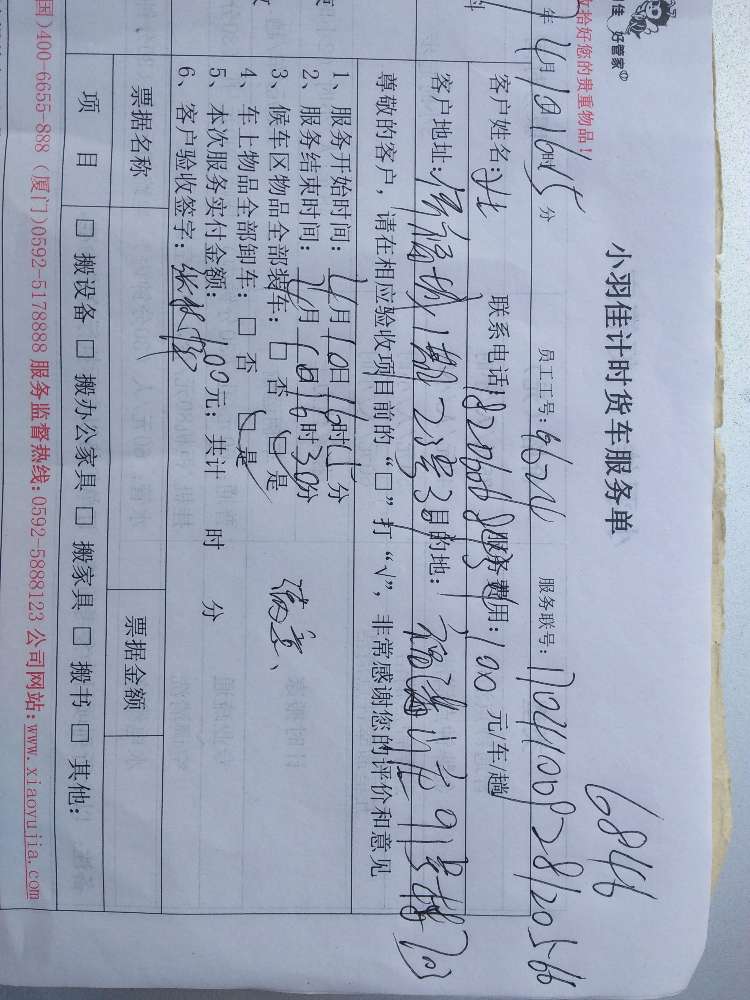 佳 好管家
收拾好您的贵重物品！
6846
小羽佳计时货车服务单
年4月10日16时15分 员工工号：9624 服务联号：
客户姓名： 联系电话： 服务费用：100 元/车/趟
客户地址： 目的地：
尊敬的客户，请在相应验收项目前的“□”打“√”，非常感谢您的评价和意见
1、服务开始时间：4月10日16时15分
2、服务结束时间：4月10日16时30分
3、候车区物品全部装车：□ 否 □ 是 满意、
4、车上物品全部卸车：□ 否 □ 是
5、本次服务实付金额：100元；共计 时 分
6、客户验收签字：
票据名称 票据金额
项 目 □ 搬设备 □ 搬办公家具 □ 搬家具 □ 搬书 □ 其他：
国)400-6655-888 (厦门)0592-5178888 服务监督热线:0592-5888123 公司网站:www.xiaoyujia.com